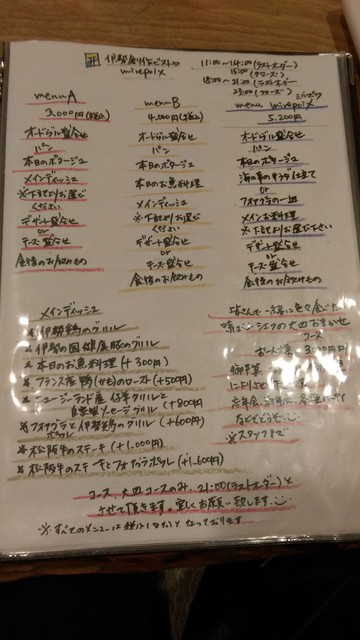 伊勢創作ビストロ
mirepoix
11:00~14:00(ラストオーダー)
15:00(クローズ)
18:00~21:00(ラストオーダー
23:00(クローズ)
menu A
3,000円(税込)
オードヴル盛合せ
パン
本日のポタージュ
メインディッシュ
※下記よりお選び
ください
デザート盛合せ
or
チーズ盛合せ
食後のお飲みもの
menu B
4,000円(税込)
オードヴル盛合せ
パン
本日のポタージュ
本日のお魚料理
メインディッシュ
※下記よりお選び
ください
デザート盛合せ
or
チーズ盛合せ
食後のお飲みもの
ミルポワ
menu mirepoix
5,200円
オードヴル盛合せ
パン
本日のポタージュ
海の幸のサラダ仕立て
or
フォアグラの一皿
メインお料理
※下記よりお選び下さい
デザート盛合せ
or
チーズ盛合せ
食後のお飲みもの
メインディッシュ
※伊勢鶏のグリル
※伊勢の国健康豚のグリル
※本日のお魚料理(+300円)
※フランス産鴨(かも)のロースト(+500円)
※ニュージーランド産仔羊グリルと
自家製ソーセージグリル(+800円
※フォアグラと伊勢鶏のグリル(+600円
ポワレ
※松阪牛のステーキ(+1,000円)
※松阪牛のステーキとフォアグラポワレ(+1,600円)
皆さんで一緒に色々食べた
シェフの大皿おまかせ
コース
お一人様 3,000円
御予算
忘年会、新年会、各種パーティ
などもどうぞ
※スタッフまで
コース、大皿コースのみ、21:00(ラストオーダー)と
させて頂きます。宜しくお願い致します。
※すべてのメニューは税込となっております